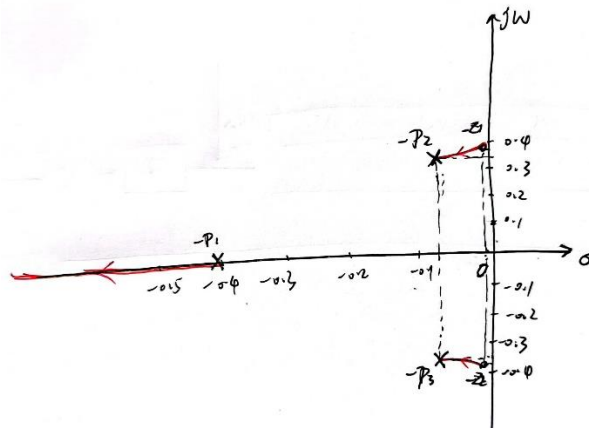 jW
-P2
-Z1
0.4
0.3
0.2
0.1
-P1
-0.5
-0.4
-0.3
-0.2
-0.1
0
σ
-0.1
-0.2
-0.3
-0.4
-P3
-Z2